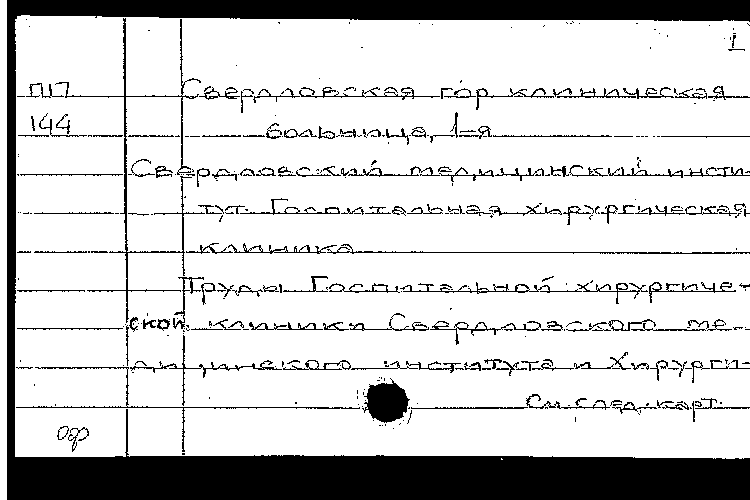 1
П17 Свердловская гор. клиническая
144 больница, 1-я
Свердловский медицинский инсти-
тут. Госпитальная хирургическая
клиника
Труды Госпитальной хирургиче-
ской клиники Свердловского ме-
дицинского института и Хирурги-
См. след. карт.